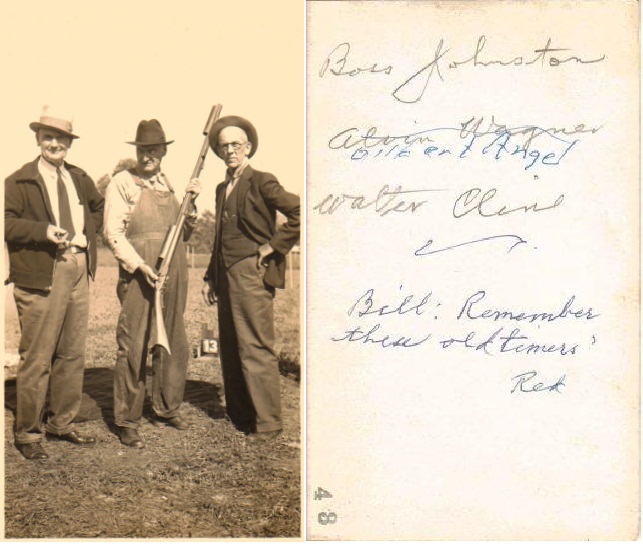 13
Boss Johnston
Alvin Wagner
Angel
Walter Cline
Bill: Remember
these oldtimers'
Red
48